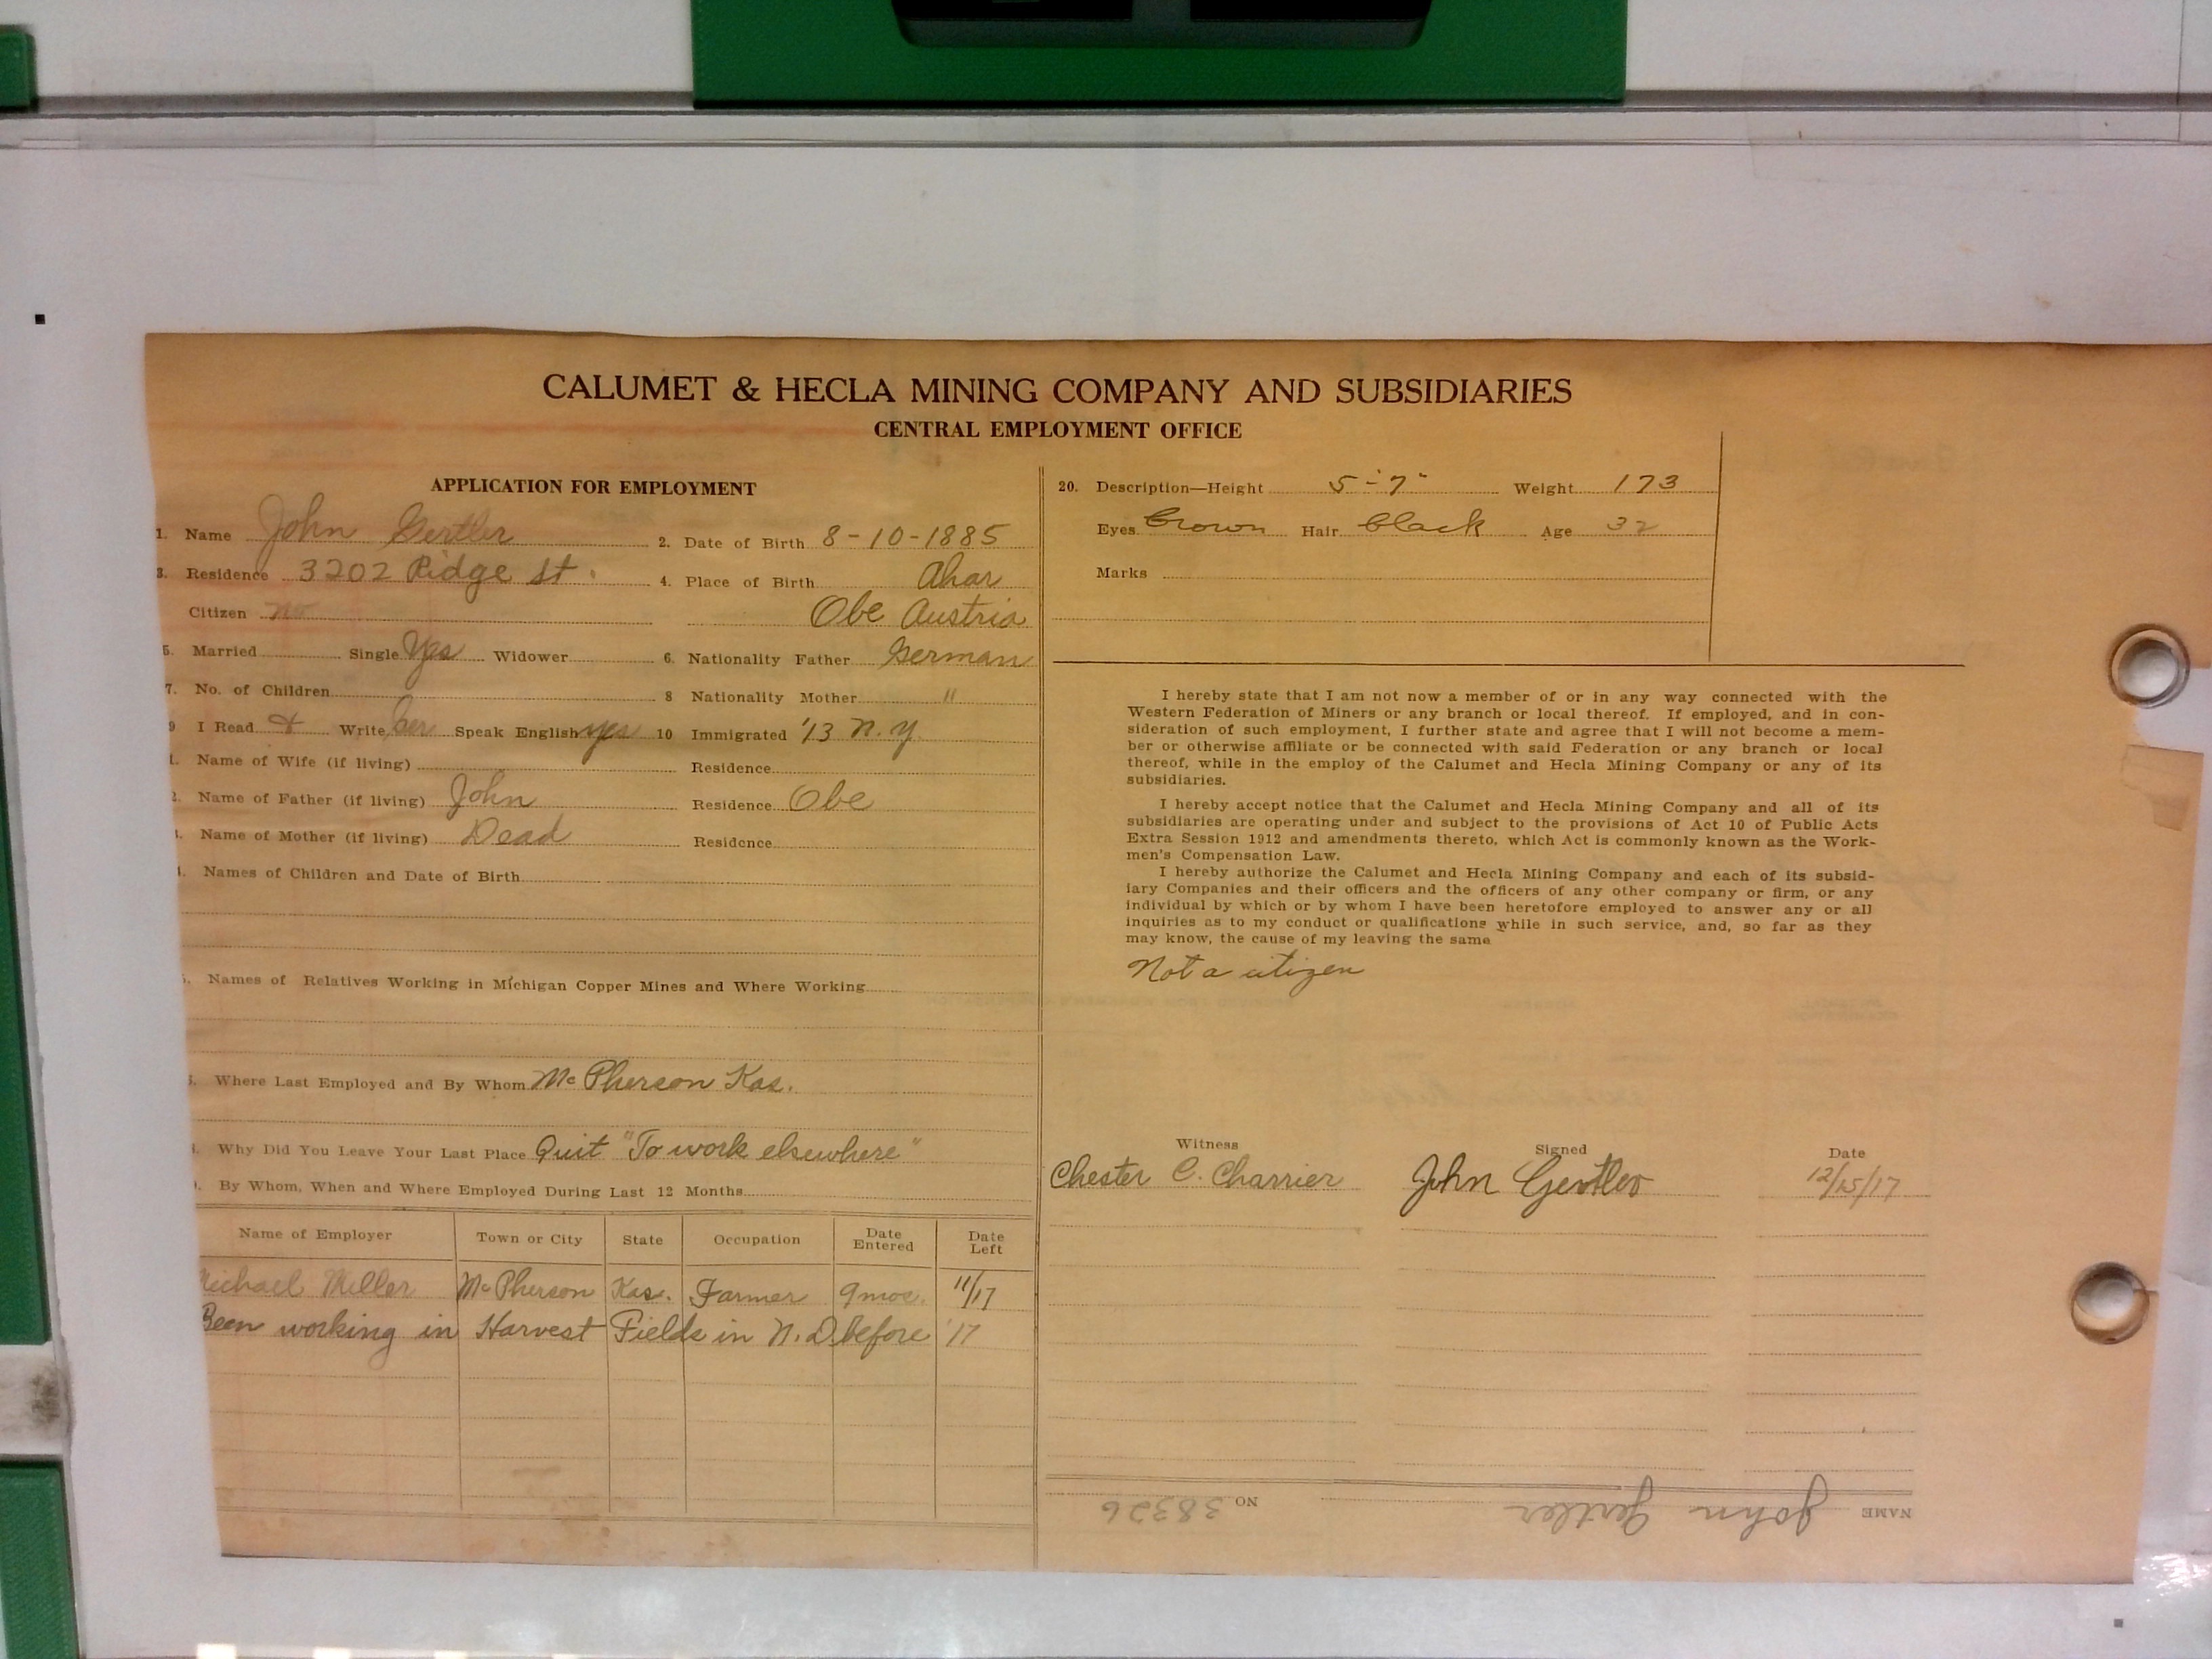 CALUMET & HECLA MINING COMPANY AND SUBSIDIARIES
CENTRAL EMPLOYMENT OFFICE
APPLICATION FOR EMPLOYMENT
1. Name John Gertler 2. Date of Birth 8-10-1885
3. Residence 3202 Ridge St. 4. Place of Birth Ahar
Citizen no Obe Austria
5. Married Single Yes Widower 6. Nationality Father German
7. No. of Children 8 Nationality Mother "
9 I Read & Write Ger Speak English yes 10 Immigrated '13 N.Y.
1. Name of Wife (if living) Residence
2. Name of Father (if living) John Residence Obe
Name of Mother (if living) Dead Residence
Names of Children and Date of Birth
Names of Relatives Working in Michigan Copper Mines and Where Working
Where Last Employed and By Whom McPherson Kas.
Why Did You Leave Your Last Place Quit "To work elsewhere"
By Whom, When and Where Employed During Last 12 Months
Name of Employer Town or City State Occupation Date Entered Date Left
Michael Miller McPherson Kas. Farmer 9 mos. 11/17
Been working in Harvest Fields in N.D. before '17
20. Description—Height 5-7" Weight 173
Eyes Brown Hair Black Age 32
Marks
I hereby state that I am not now a member of or in any way connected with the
Western Federation of Miners or any branch or local thereof. If employed, and in con-
sideration of such employment, I further state and agree that I will not become a mem-
ber or otherwise affiliate or be connected with said Federation or any branch or local
thereof, while in the employ of the Calumet and Hecla Mining Company or any of its
subsidiaries.
I hereby accept notice that the Calumet and Hecla Mining Company and all of its
subsidiaries are operating under and subject to the provisions of Act 10 of Public Acts
Extra Session 1912 and amendments thereto, which Act is commonly known as the Work-
men's Compensation Law.
I hereby authorize the Calumet and Hecla Mining Company and each of its subsid-
iary Companies and their officers and the officers of any other company or firm, or any
individual by which or by whom I have been heretofore employed to answer any or all
inquiries as to my conduct or qualifications while in such service, and, so far as they
may know, the cause of my leaving the same
Not a citizen
Witness Signed Date
Chester C. Charrier John Gertler 12/15/17
NAME John Gertler NO 38326